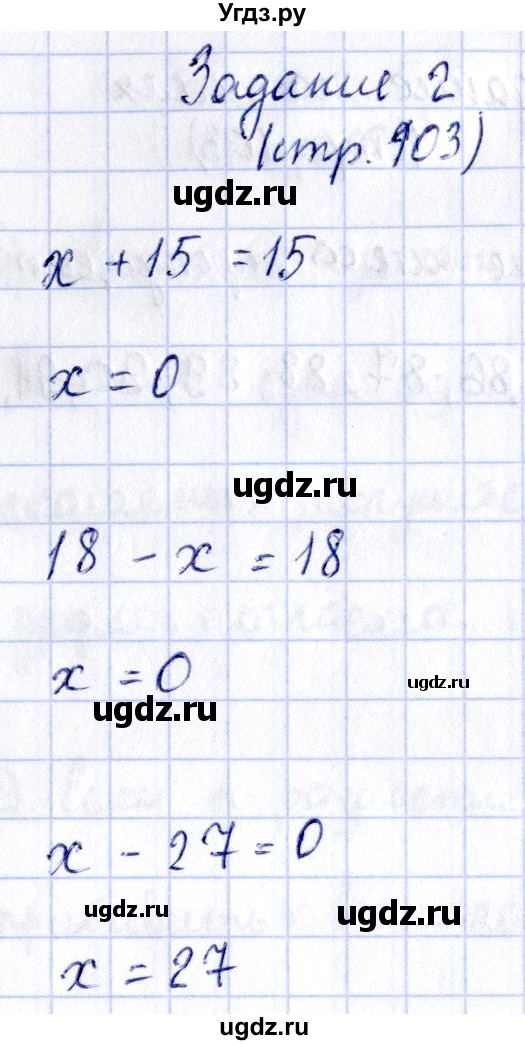 Угдз.ру
Задание 2
(стр. 103)
ugdz.ru
x + 15 = 15
x = 0
ugdz.ru
18 - x = 18
x = 0
ugdz.ru
ugdz.ru
x - 27 = 0
ugdz.ru
ugdz.ru
x = 27
ugdz.ru